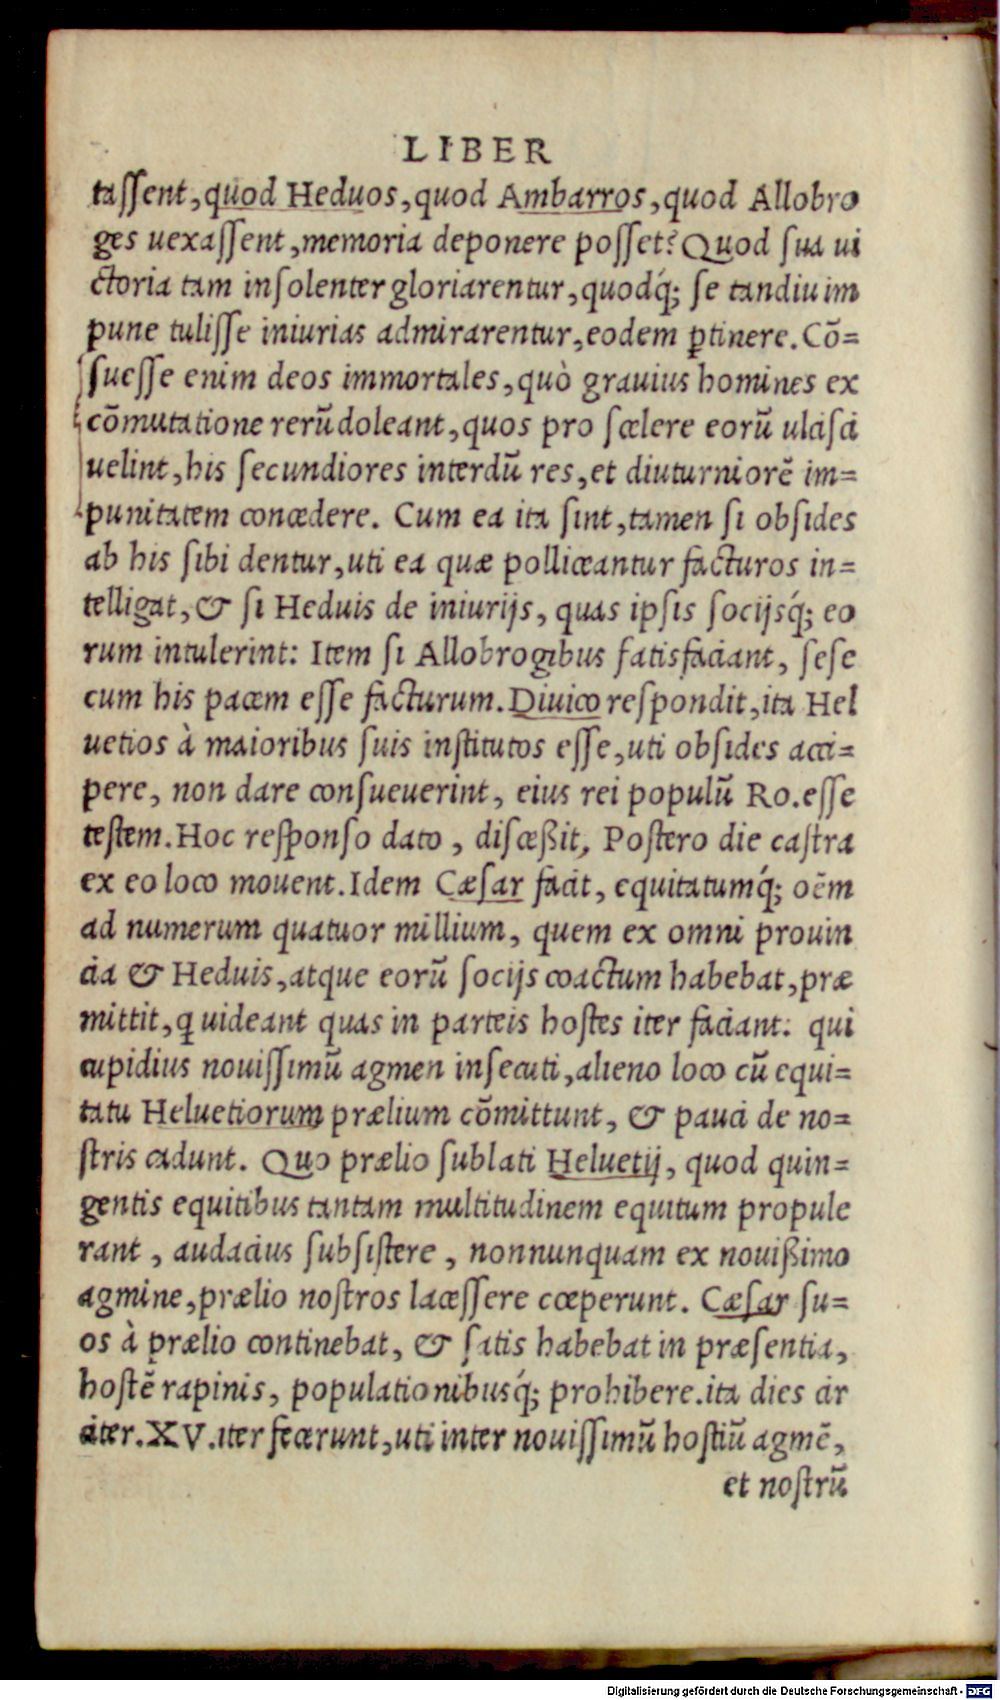 LIBER
taſſent, quod Heduos, quod Ambarros, quod Allobro
ges uexaſſent, memoria deponere poſſet? Quod ſua ui
ctoria tam inſolenter gloriarentur, quodq́; ſe tandiu im
pune tuliſſe iniurias admirarentur, eodem ꝑtinere. Cõ=
ſueſſe enim deos immortales, quò grauius homines ex
cõmutatione rerũ doleant, quos pro ſcelere eorũ ulciſci
uelint, his ſecundiores interdũ res, et diuturniorẽ im=
punitatem concedere. Cum ea ita ſint, tamen ſi obſides
ab his ſibi dentur, uti ea quæ polliceantur facturos in=
telligat, & ſi Heduis de iniurijs, quas ipſis ſocijsq́; eo
rum intulerint: Item ſi Allobrogibus ſatisfaciant, ſeſe
cum his pacem eſſe facturum. Diuico reſpondit, ita Hel
uetios à maioribus ſuis inſtitutos eſſe, uti obſides acci=
pere, non dare conſueuerint, eius rei populũ Ro. eſſe
teſtem. Hoc reſponſo dato, diſceßit, Poſtero die caſtra
ex eo loco mouent. Idem Cæſar facit, equitatumq́; oẽm
ad numerum quatuor millium, quem ex omni prouin
cia & Heduis, atque eorũ ſocijs coactum habebat, præ
mittit, ꝗ uideant quas in parteis hoſtes iter faciant: qui
cupidius nouiſſimũ agmen inſecuti, alieno loco cũ equi=
tatu Heluetiorum prælium cõmittunt, & pauci de no=
ſtris cadunt. Quo prælio ſublati Heluetij, quod quin=
gentis equitibus tantam multitudinem equitum propule
rant, audacius ſubſiſtere, nonnunquam ex nouißimo
agmine, prælio noſtros laceſſere cœperunt. Cæſar ſu=
os à prælio continebat, & ſatis habebat in præſentia,
hoſtẽ rapinis, populationibusq́; prohibere. ita dies cir
citer. XV. iter fecerunt, uti inter nouiſſimũ hoſtiũ agmẽ,
et noſtrũ
Digitalisierung gefördert durch die Deutsche Forschungsgemeinschaft - DFG